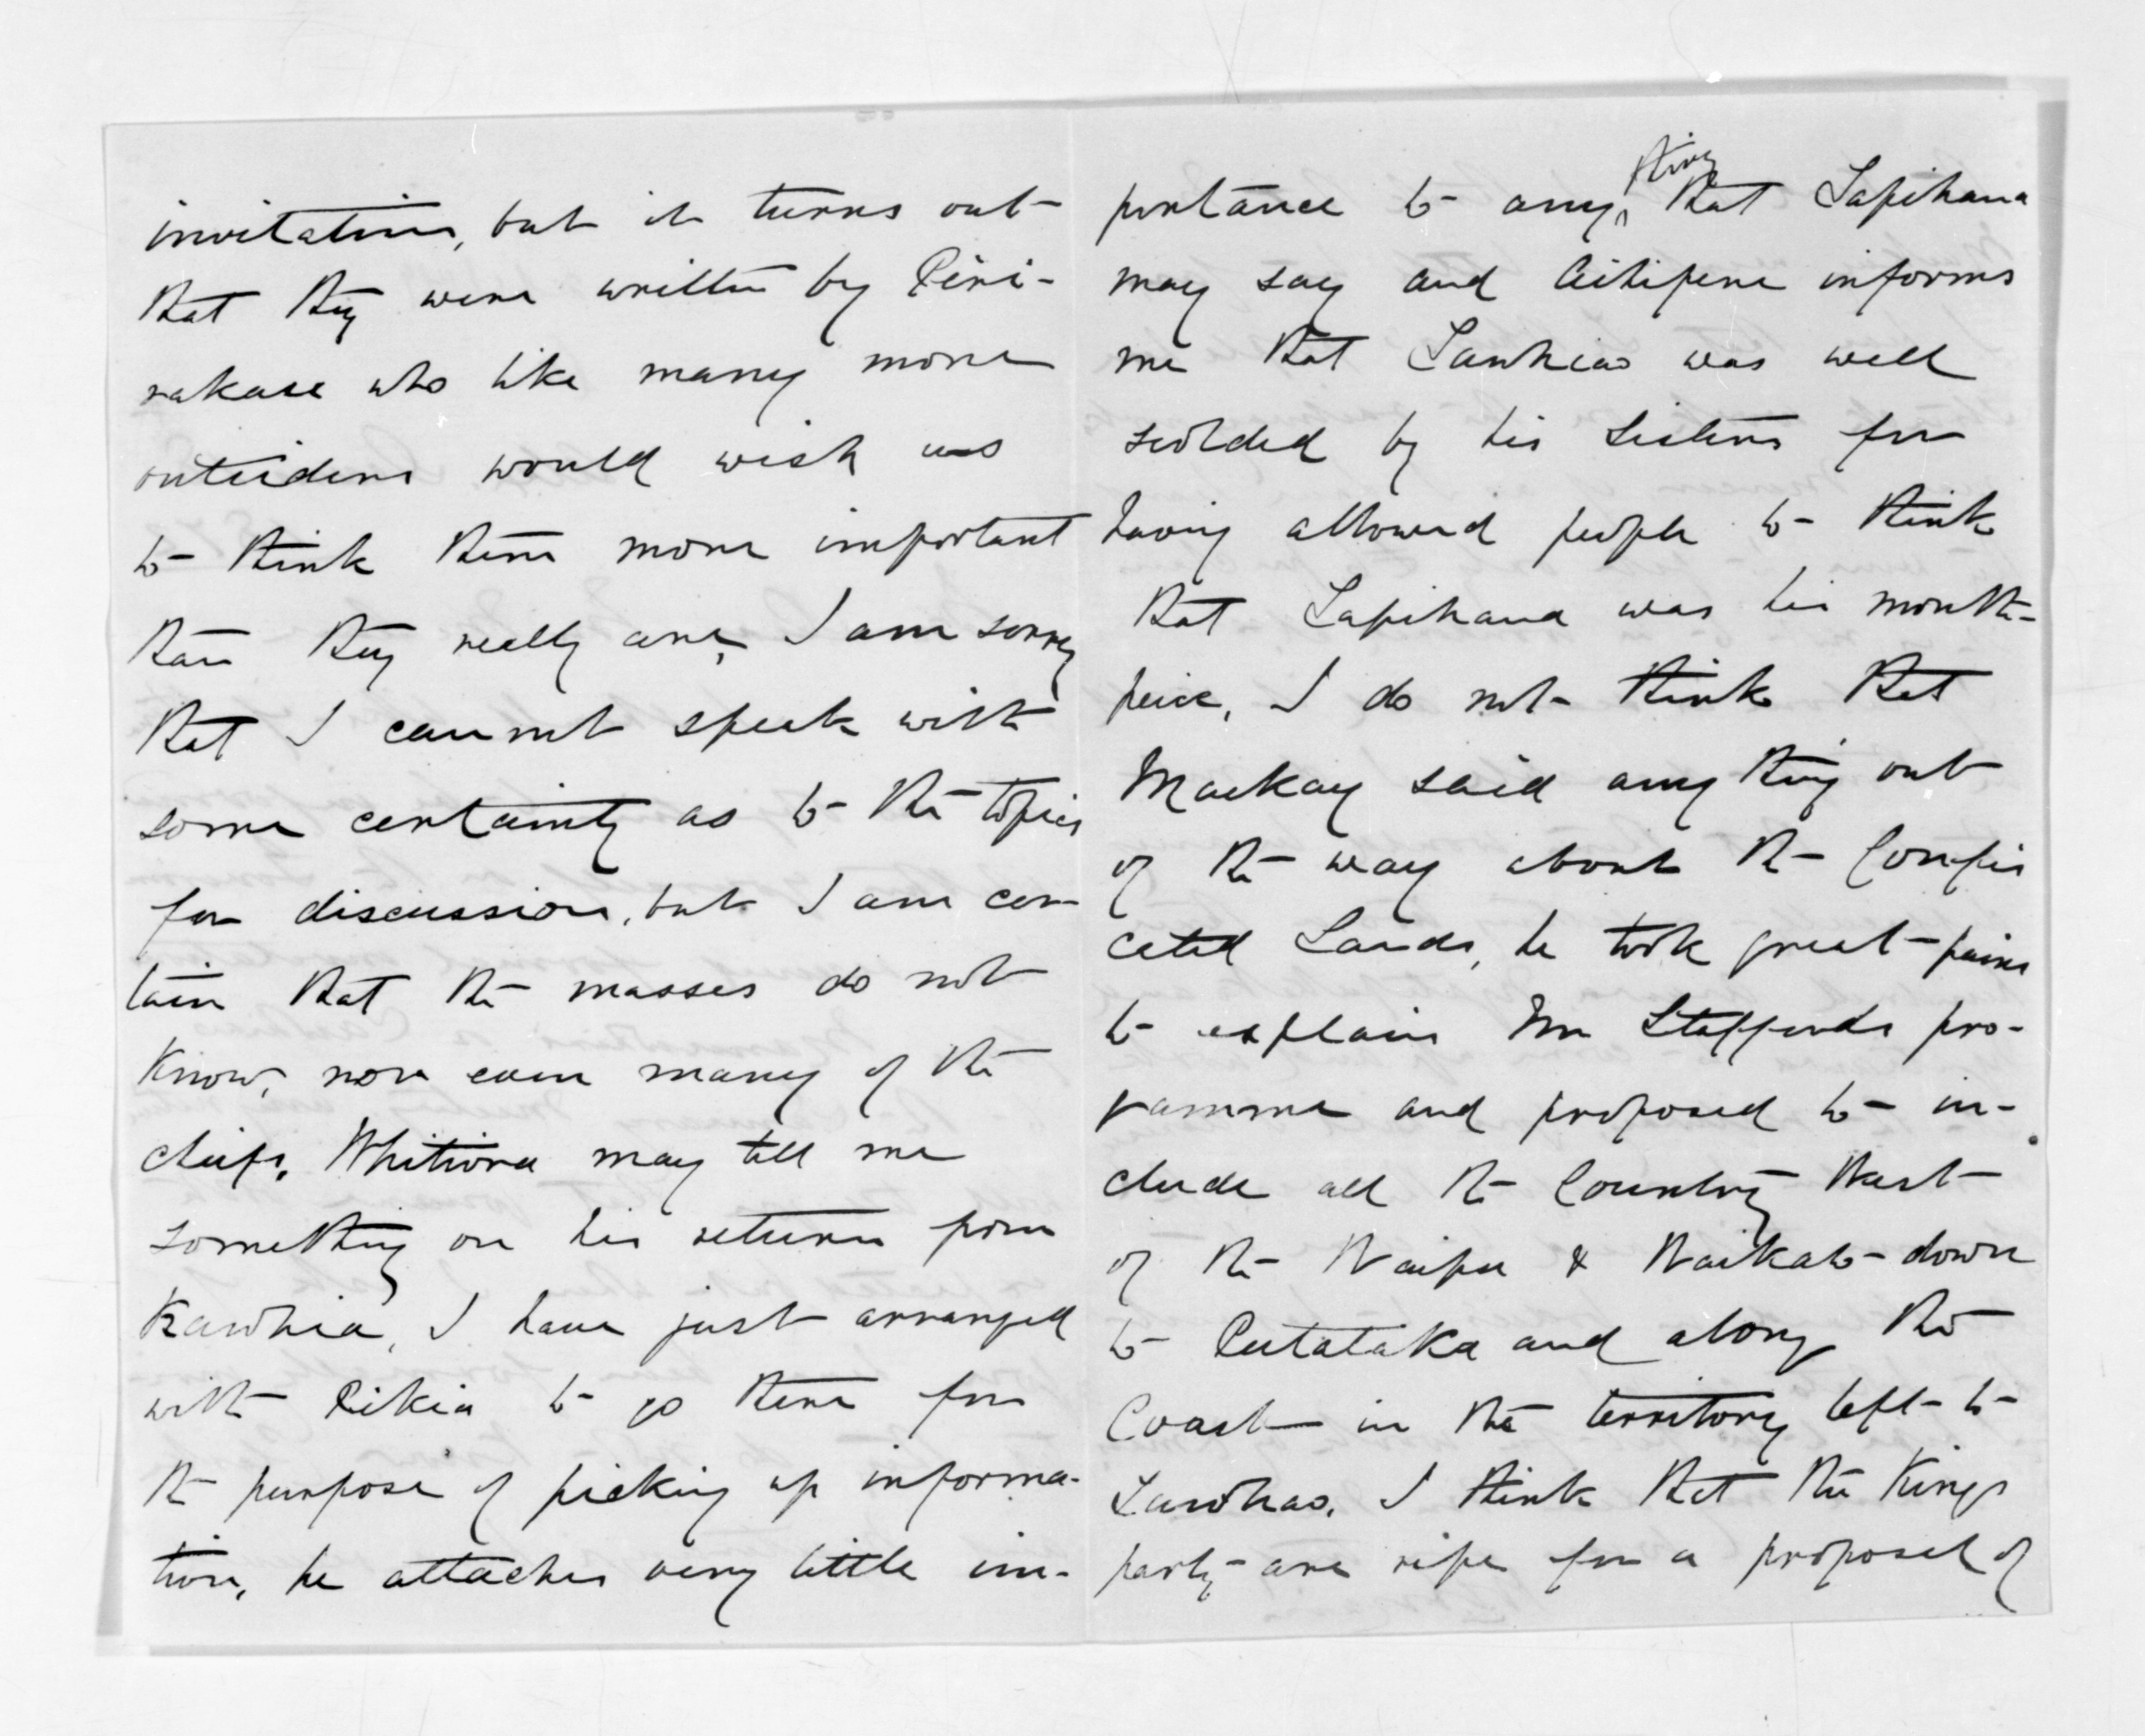 invitation, but it turns out
that they were written by Piri-
rakau who like many more
outsiders would wish us
to think them more important
than they really are, I am sorry
that I cannot speak with
some certainty as to the topics
for discussion, but I am cer-
tain that the masses do not
know, nor even many of the
chiefs, Whitiora may tell me
something on his return from
Kawhia, I have just arranged
with Pikia to go there for
the purpose of picking up informa-
tion, he attaches very little im-
portance to any thing that Tapihana
may say and Aihipene informs
me that Tawhiao was well
scolded by his sisters for
having allowed people to think
that Tapihana was his mouth-
peice, I do not think that
Mackay said any thing out
of the way about the Confis
cated Lands, he took great pains
to explain Mr Staffords pro-
ramme and proposed to in-
clude all the Country West
of the Waipa & Waikato down
to Putataka and along the
Coast in the territory left to
Tawhao. I think that the Kings
party are ripe for a proposal of